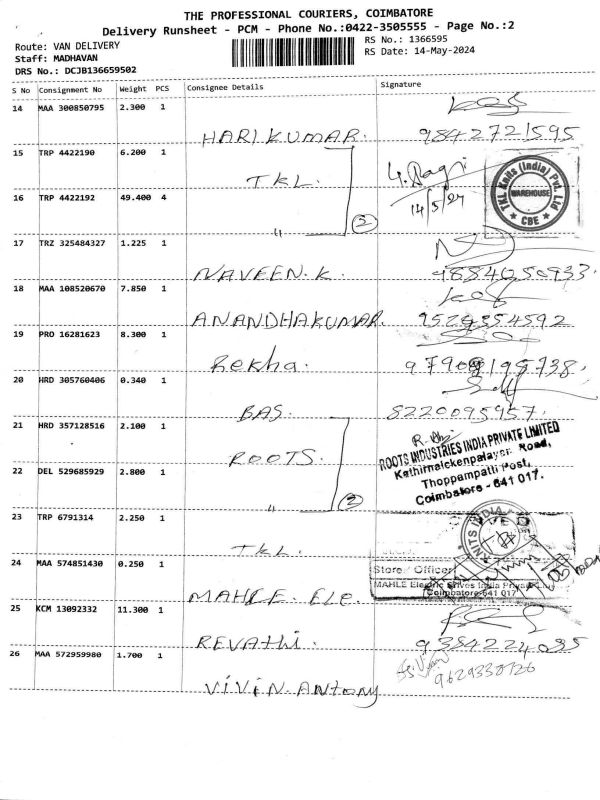 THE PROFESSIONAL COURIERS, COIMBATORE
Delivery Runsheet - PCM - Phone No.:0422-3505555 - Page No.:2
Route: VAN DELIVERY
RS No.: 1366595
Staff: MADHAVAN
RS Date: 14-May-2024
DRS No.: DCJB136659502
S No Consignment No Weight PCS Consignee Details Signature
14 MAA 300850795 2.300 1
HARIKUMAR. 9842721595
15 TRP 4422190 6.200 1
TKL.
14/5/24
TKL Knits (India) Pvt. Ltd
WAREHOUSE
CBE
16 TRP 4422192 49.400 4
" 2
17 TRZ 325484327 1.225 1
NAVEEN.K. 9884050933.
18 MAA 108520670 7.850 1
ANANDHAKUMAR. 9524354592
19 PRO 16281623 8.300 1
Rekha.
20 HRD 305760406 0.340 1
BAS. 8220095957.
21 HRD 357128516 2.100 1
ROOTS.
ROOTS INDUSTRIES INDIA PRIVATE LIMITED
Kathirnaickenpalayam Road,
Thoppampatti Post,
Coimbatore - 641 017.
22 DEL 529685929 2.800 1
" 2
23 TRP 6791314 2.250 1
TKL.
KNITS INDIA
24 MAA 574851430 0.250 1
Store Officer
MAHLE Electric Drives India Private
Coimbatore-641 017
MAHLE. Ele.
25 KCM 13092332 11.300 1
REVATHI. 9384224035
26 MAA 572959980 1.700 1
9629330726
VIVIN. ANTONY